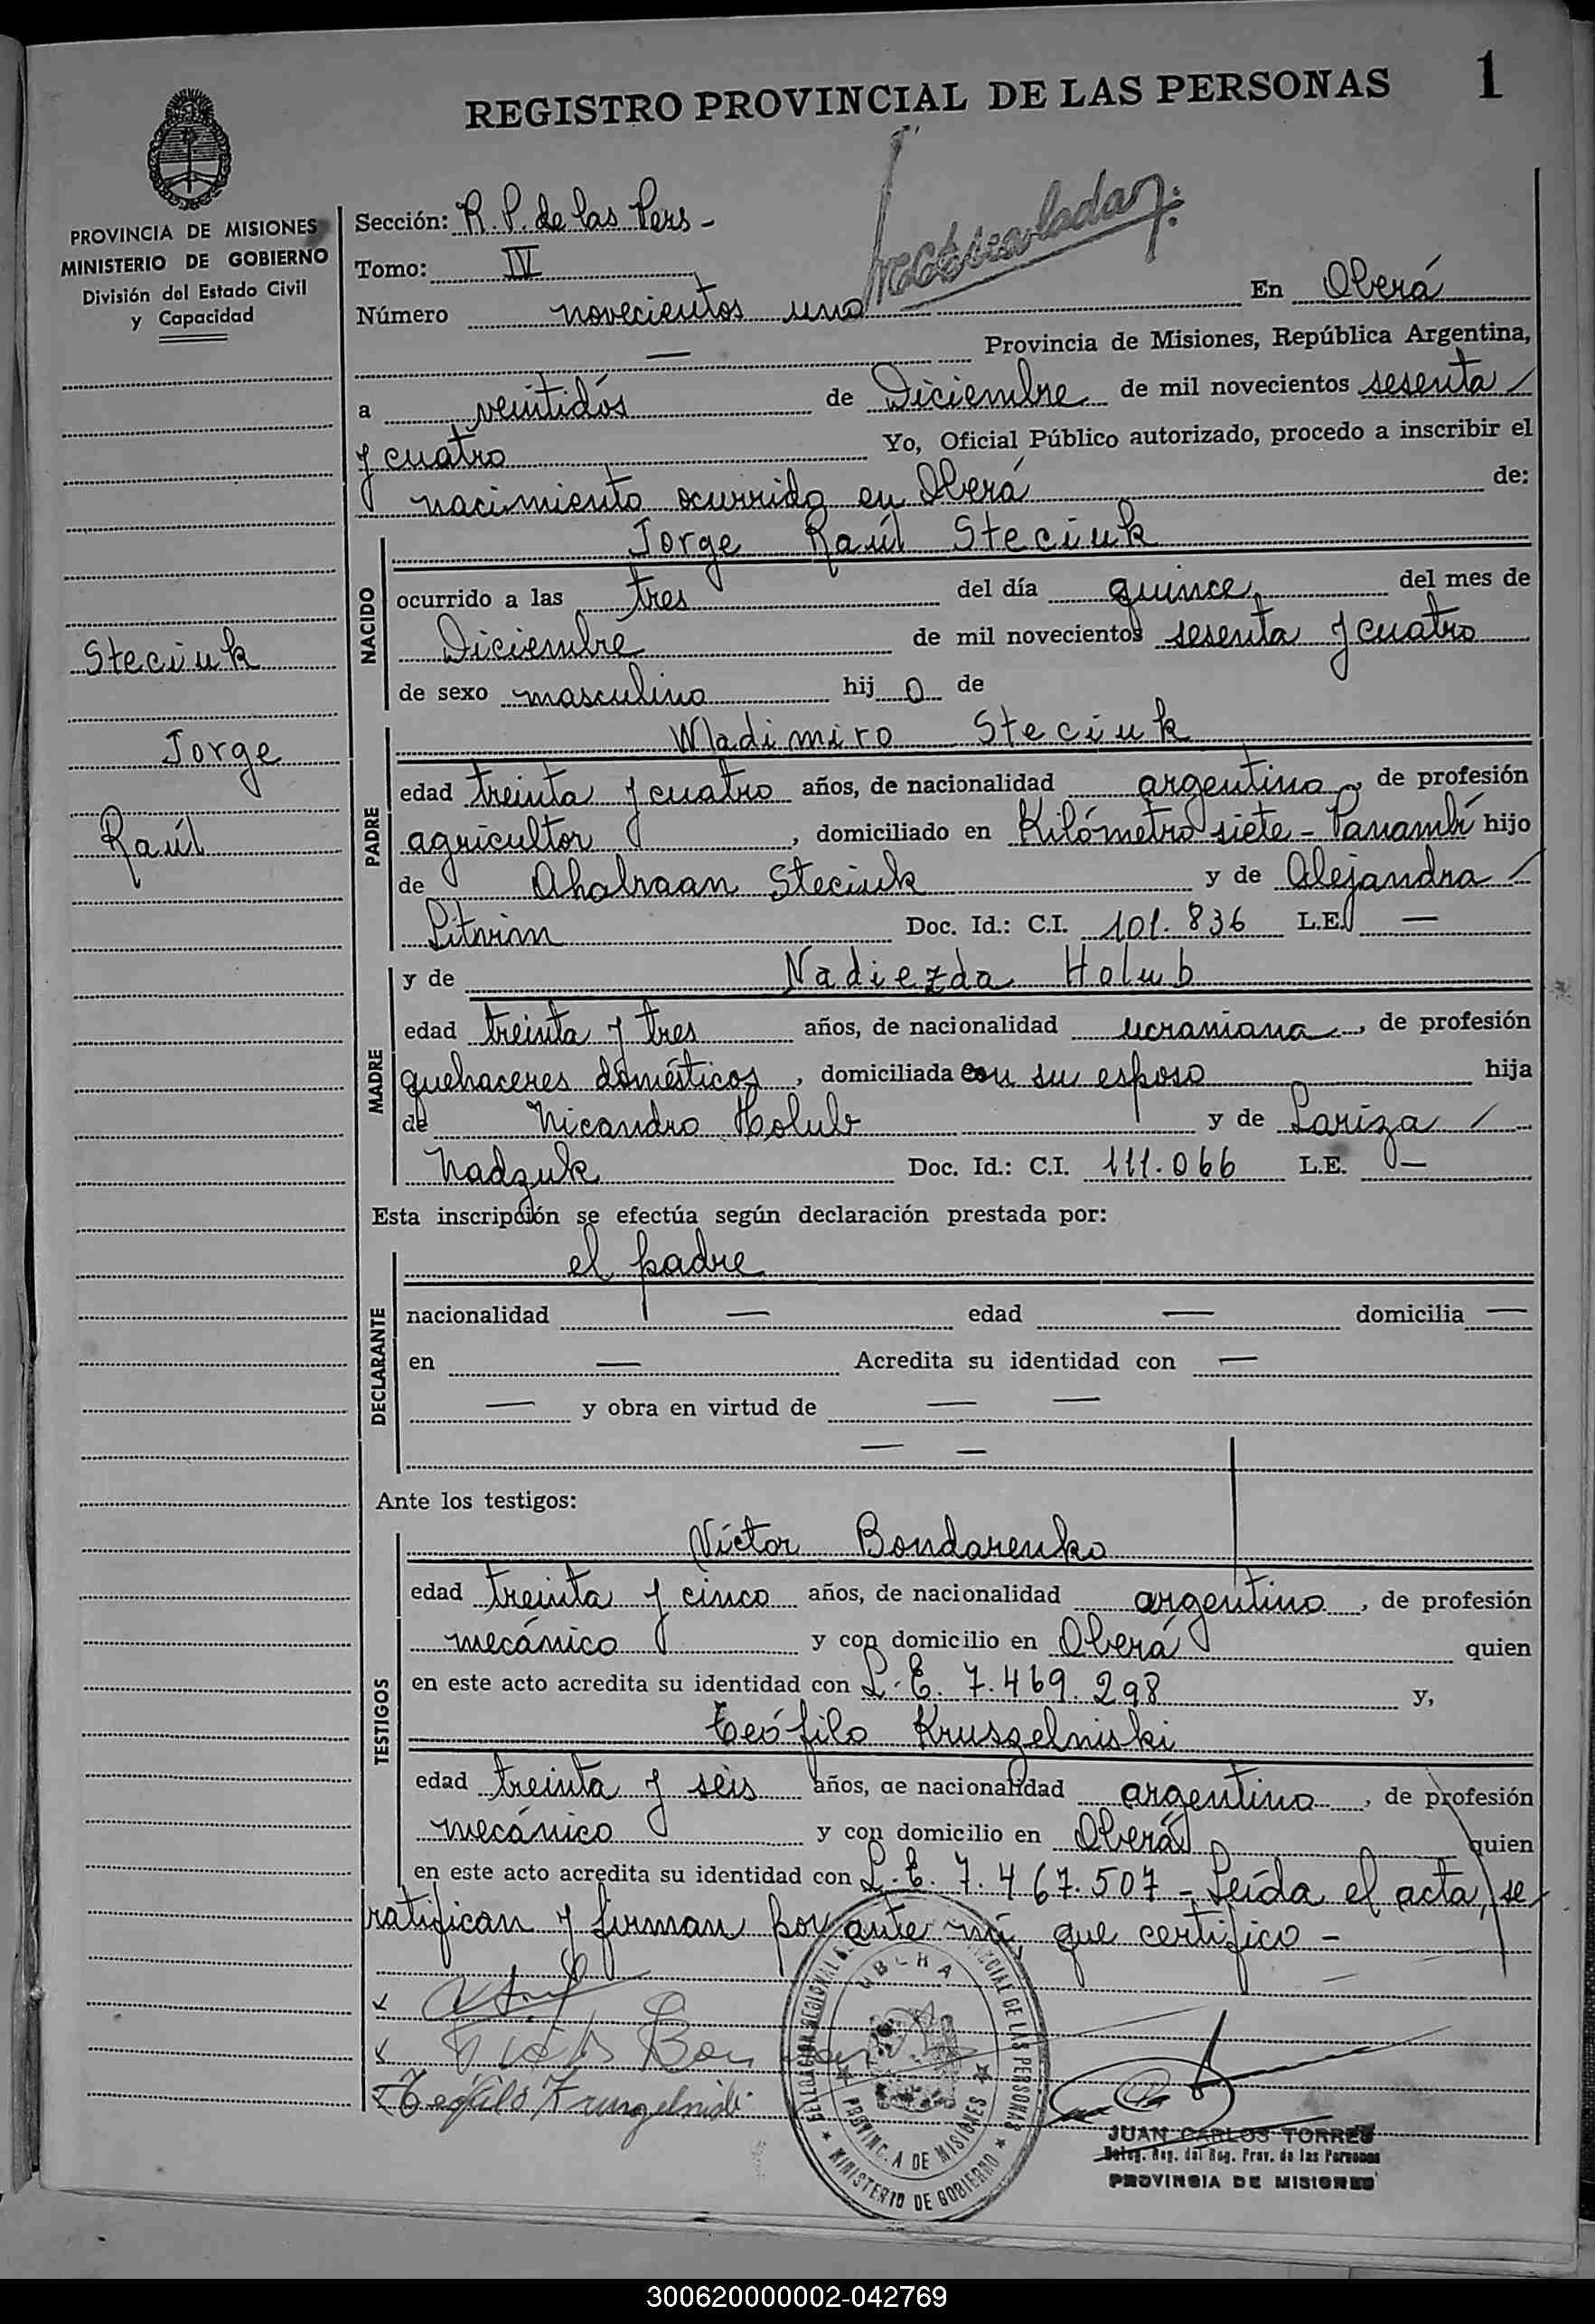 REGISTRO PROVINCIAL DE LAS PERSONAS 1
PROVINCIA DE MISIONES
MINISTERIO DE GOBIERNO
División del Estado Civil
y Capacidad
Steciuk
Jorge
Raúl
Sección: R. P. de las Pers -
Tomo: IV
Número novecientos uno En Oberá
— Provincia de Misiones, República Argentina,
a veintidós de Diciembre de mil novecientos sesenta /
y cuatro Yo, Oficial Público autorizado, procedo a inscribir el
nacimiento ocurrido en Oberá de:
NACIDO
Jorge Raúl Steciuk
ocurrido a las tres del día quince, del mes de
Diciembre de mil novecientos sesenta y cuatro
de sexo masculino hij o de
PADRE
Wladimiro Steciuk
edad treinta y cuatro años, de nacionalidad argentino, de profesión
agricultor, domiciliado en Kilómetro siete - Panambí hijo
de Steciuk y de Alejandra /
Doc. Id.: C.I. 101.836 L.E. —
MADRE
y de Nadiezda Holub
edad treinta y tres años, de nacionalidad ucraniana, de profesión
quehaceres domésticos, domiciliada con su esposo hija
de Nicandro Holub y de Lariza /
Nadzuk Doc. Id.: C.I. 111.066 L.E. —
Esta inscripción se efectúa según declaración prestada por:
DECLARANTE
el padre
nacionalidad — edad — domicilia —
en — Acredita su identidad con —
— y obra en virtud de — —
— —
Ante los testigos:
TESTIGOS
Víctor Bondarenko
edad treinta y cinco años, de nacionalidad argentino, de profesión
mecánico y con domicilio en Oberá quien
en este acto acredita su identidad con L. E. 7.469.298 y,
Teófilo Kruszelniski
edad treinta y seis años, de nacionalidad argentino, de profesión
mecánico y con domicilio en Oberá quien
en este acto acredita su identidad con L. E. 7.467.507 - Leída el acta, se
ratifican y firman por ante mí, que certifico -
PROVINCIA DE MISIONES
MINISTERIO DE GOBIERNO
JUAN CARLOS TORRES
Deleg. Reg. del Reg. Prov. de las Personas
PROVINCIA DE MISIONES
300620000002-042769